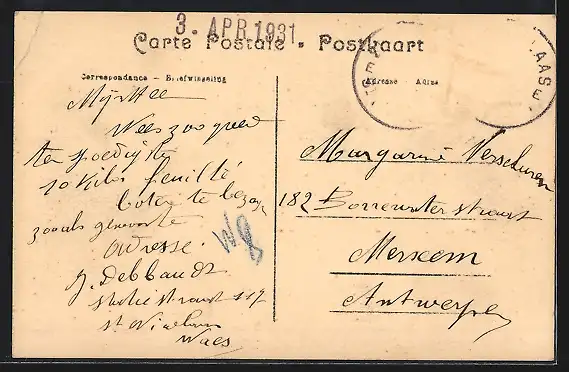 3. APR. 1931
Carte Postale - Postkaart
Correspondance - Briefwisseling
Adresse - Adres
Mijnhee
Wees zoo goed
ten spoedigste
10 kilos feuillé
boter te bezorg
zooals gewoonte
adresse.
J. Debbaudt
statiestraat 117
st Niklaas
Waes
Margarine Verschueren
182
Borrewaterstraat
Merxem
Antwerpen